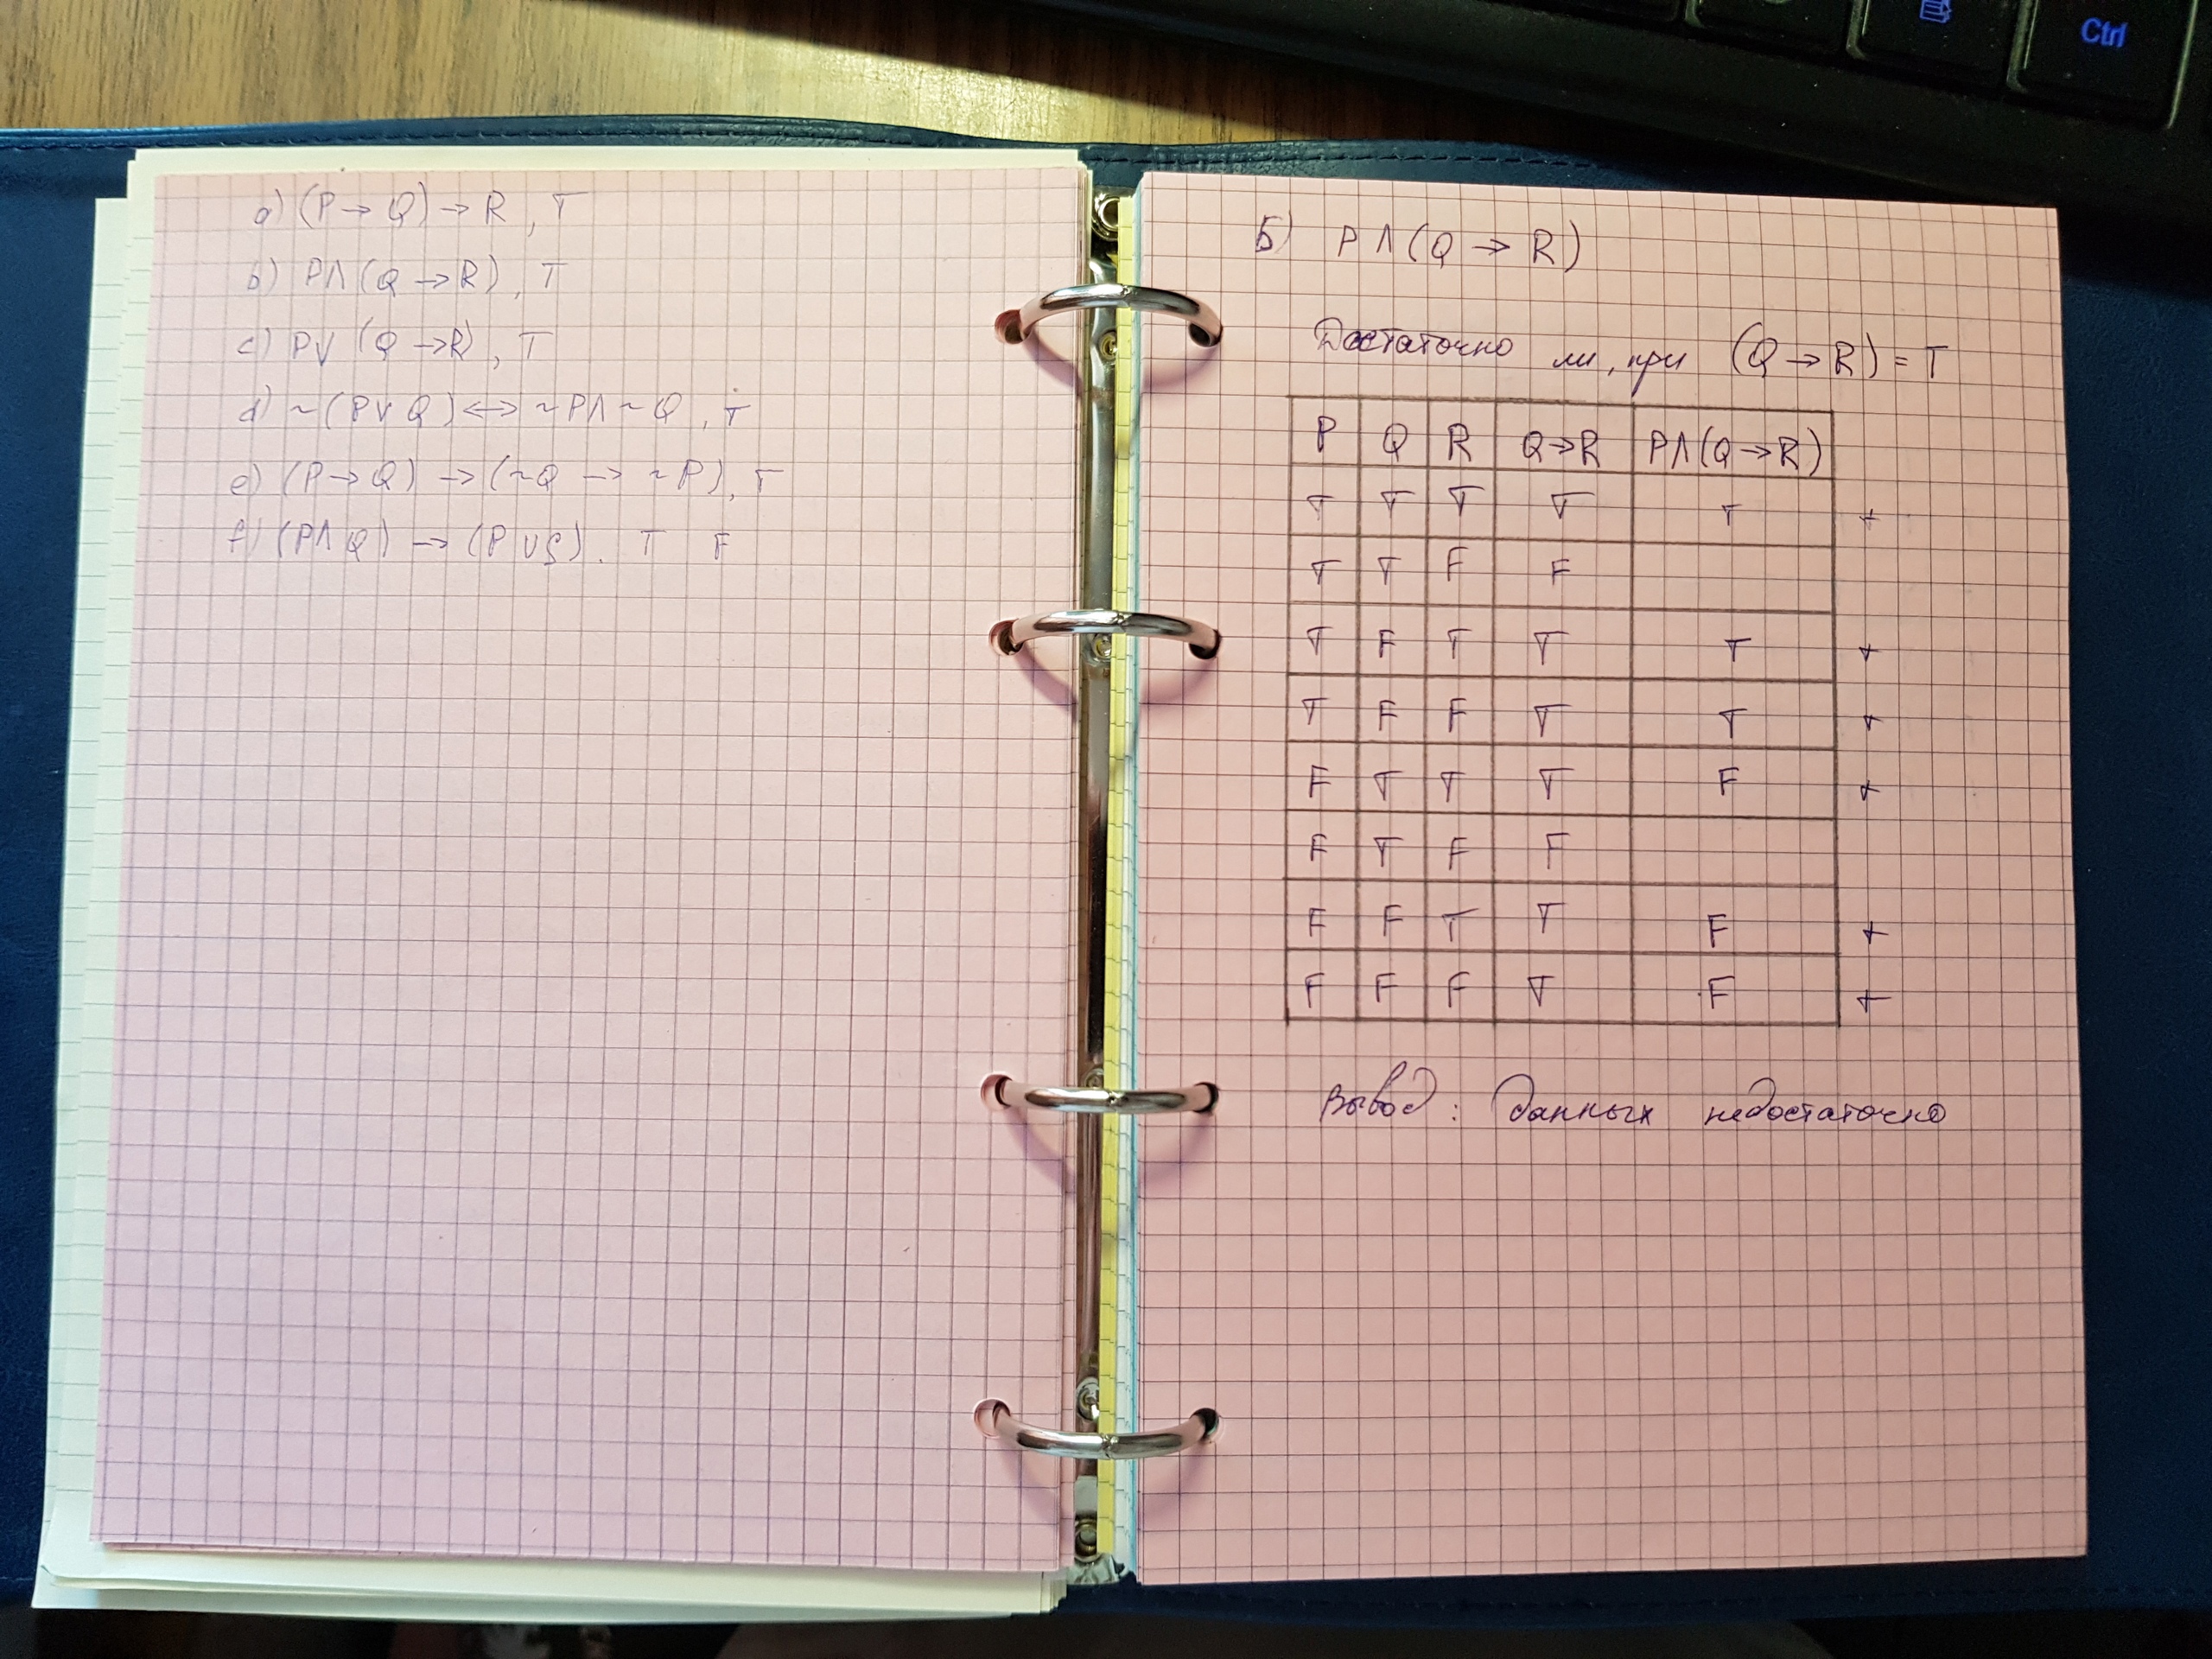 a) (P → Q) → R , T
b) P Λ (Q → R) , T
c) P V (Q → R) , T
d) ~ (P V Q) <-> ~ P Λ ~ Q , T
e) (P → Q) → (~Q → ~P), T
f) (P Λ Q) → (P V S). T F
Б) P Λ (Q → R)
Достаточно ли, при (Q → R) = T
P Q R Q→R PΛ(Q→R)
T T T T T +
T T F F
T F T T T +
T F F T T +
F T T T F +
F T F F
F F T T F +
F F F T F +
Вывод: данных недостаточно
Ctrl